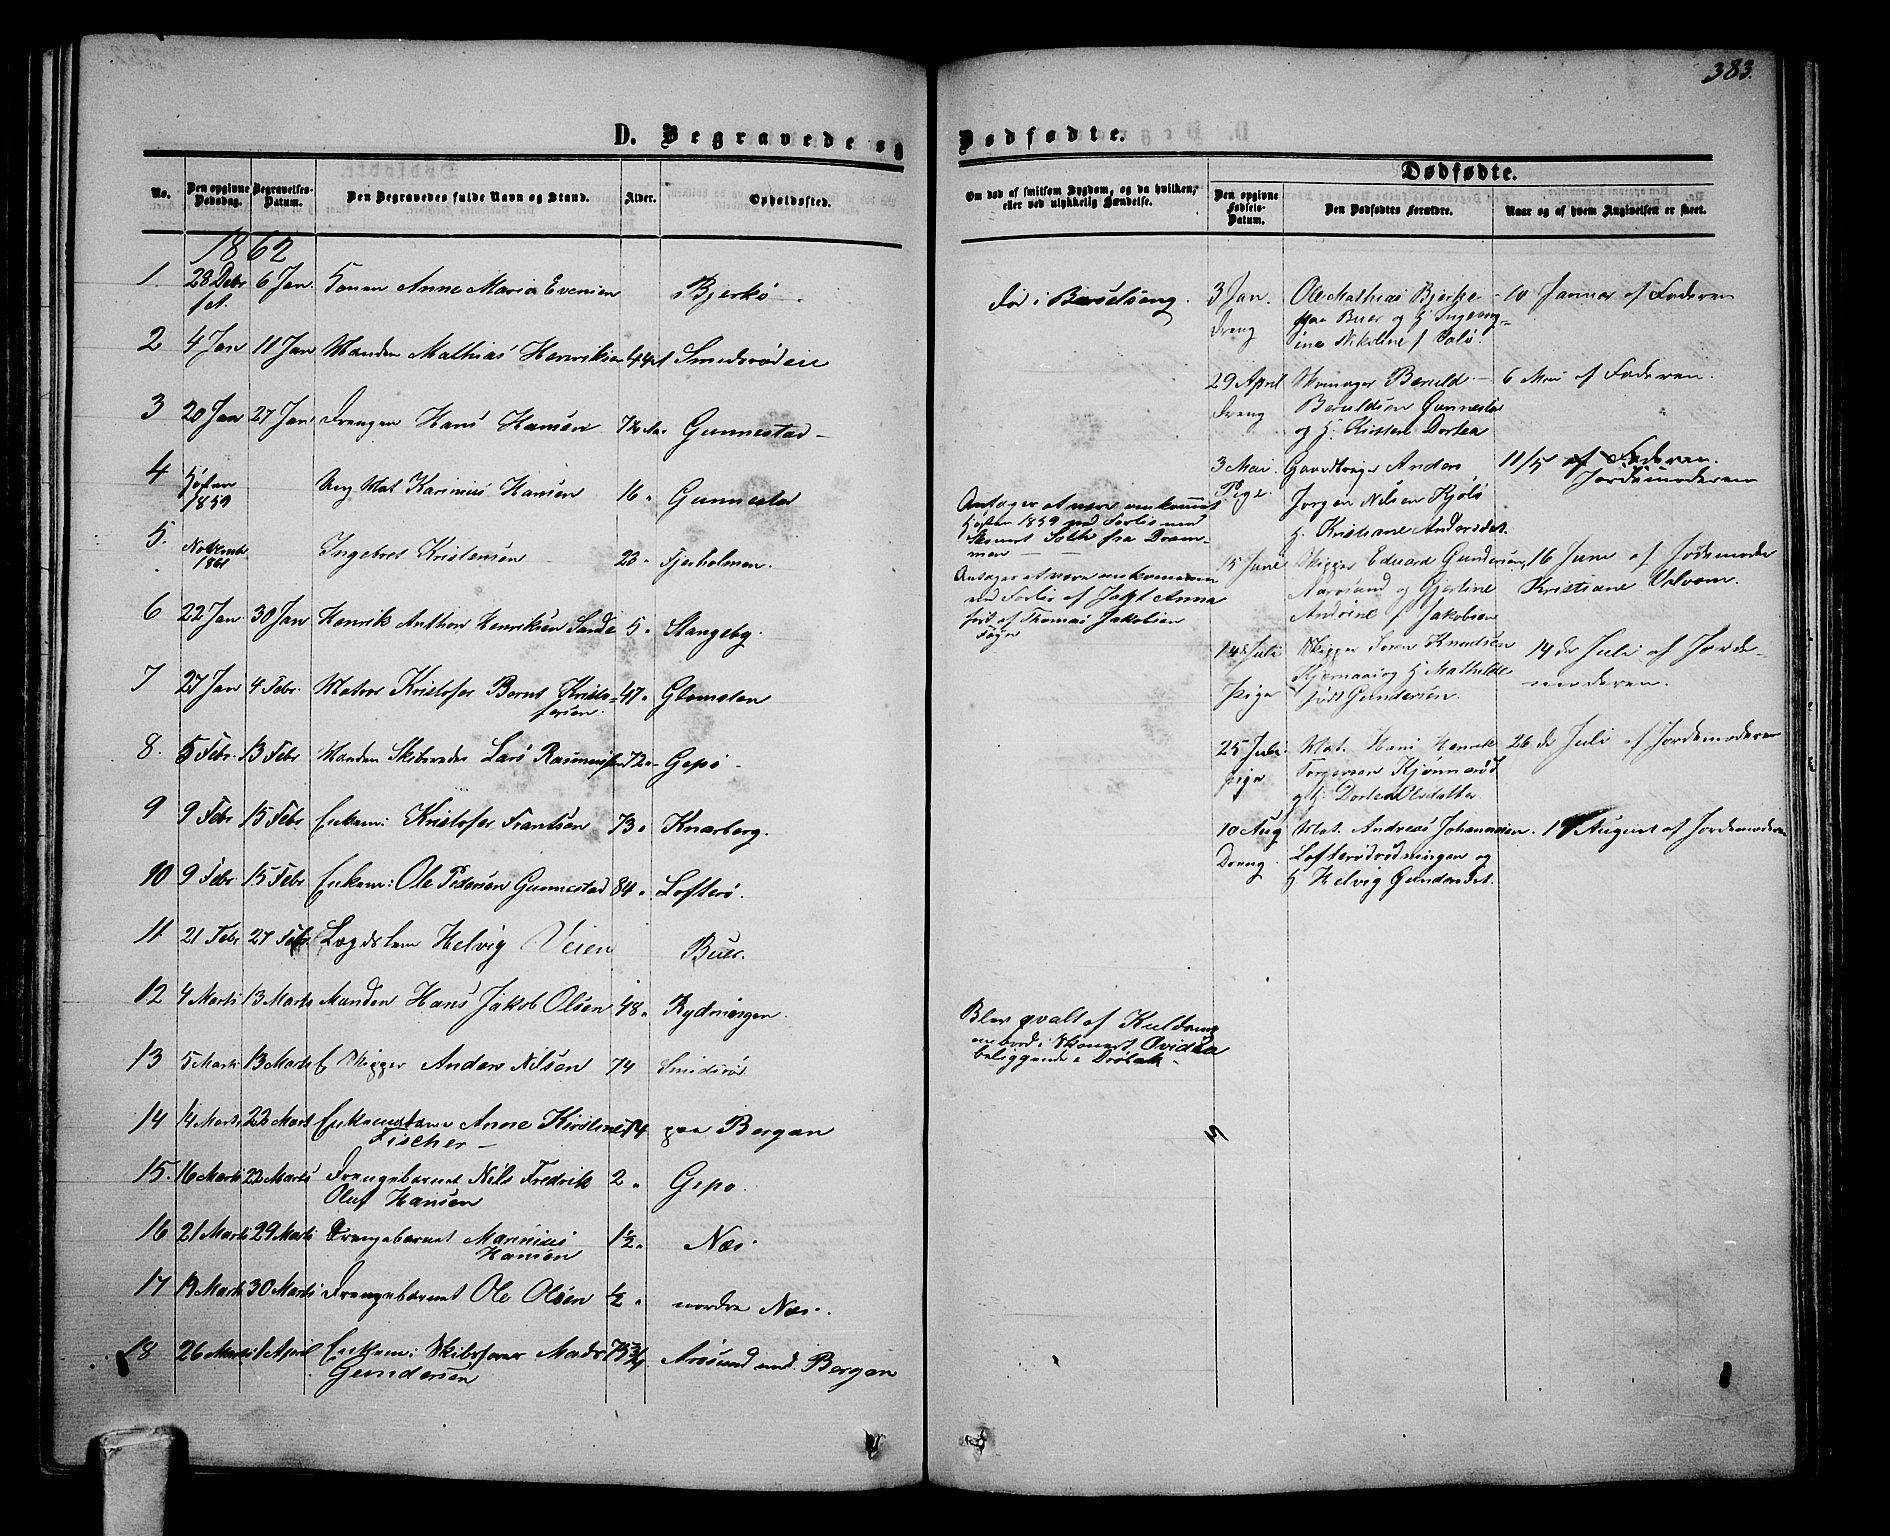 383.
D. Begravede og Dødfødte.
No.
Den opgivne Dødsdag.
Begravelses-Datum.
Den Begravedes fulde Navn og Stand.
Alder.
Opholdssted.
Om død af smitsom Sygdom, og da hvilken, eller ved ulykkelig Hændelse.
Dødfødte.
Den opgivne Fødsels-Datum.
Den Dødfødtes Forældre.
Naar og af hvem Angivelsen er skeet.
1862
1. 28 Debr 6 Jan. Konen Anne Maria Evensen Bjerkø
Død i Barselseng.
2 4 Jan 11 Jan Manden Mathias Henriksen 44 Smedsrødeie
3 20 Jan 27 Jan Drengen Hans Hansen Gunnestad
4 Høsten 1859 Ung Mat Karinius Hansen 16 " Gunnestad
Antages at være omkommet
Høsten 1859 ved Forlis med
Skonert fra Dram-
men
5. Novemb 1861 Ingebret Kristensen 23 " Fjerholmen.
Antages at være omkommen
ved Forlis af Jagt Anna
ført af Thomas Jakobsen
6 22 Jan 30 Jan Henrik Anthon Henriksen Sande 5 " Stangeby.
7 27 Jan 4 Febr. Matros Kristofer Bernt Kristo-
fersen. 47 " Glomsten
8. 5 Febr. 13 Febr Manden Skibsreder Lars Rasmussen 72 " Gipø
9 9 Febr 15 Febr. Enkem: Kristofer Frantsen 73 " Knarberg.
10 9 Febr 15 Febr Enkem: Ole Pedersen Gunnestad 84 " Lofterø.
11. 21 Febr 27 Febr. Lægdslem Helvig Veien Buer.
12 4 Marts 13 Marts Manden Hans Jakob Olsen 48 " Rydningen.
Blev qvalt af Kuldamp
ombord i Skonert Ovidia
beliggende i Drøbak
13 5 Marts 13 Marts Skipper Anders Nilsen 74 Smidsrø
14 14 Marts 22 Marts Anne Kirstine
Fischer 74 paa Bergan
15. 16 Marts 22 Marts Drengebarnet Nils Fredrik
Oluf Hansen 2 " Gipø.
16 21 Marts 29 Marts Drengebarnet Marinius
Hansen 1½ " Næs.
17 19 Marts 30 Marts Drengebarnet Ole Olsen ½ " nordre Næs.
18 26 Marts 1 April Enkem: Skibsfører Mads
Gundersen 75¾ Arøsund ved Bergan
3 Jan.
Dreng
Ole Mathias Bjerke
paa Buer og H. Ingeborg
ine Nikoline f Valø.
10 Januar af Faderen
29 April
Dreng
Skomager Beruld
Beruldsen Gunnestad
og H. Kirsten Dortea
6 Mai af Faderen.
3 Mai.
Pige.
Gaardbruger Anders
Jørgen Nilsen Kjølø
H. Kristiane Andersdat.
11/5 af Faderen.
Jordemoderen
15 Juni
Skipper Eduard Gundersen,
Narøsund og Gjertine
Andrine f Jakobsen
16 Juni af Jordemoder
Kristiane Ulvøen.
14 Juli
Pige
Skipper Søren Knudsen
og H Mathilde
født Gundersen.
14 de Juli af Jorde-
moderen.
25 Juli
Pige
Mat. Hans Henrik
Torgersen Kjønnerød
og H. Dortea Olsdatter
26 de Juli af Jordemoderen
10 Aug
Dreng.
Mat. Andreas Johannesen.
Lofterødrødningen og
H Helvig Gundersdat.
August af Jordemoderen